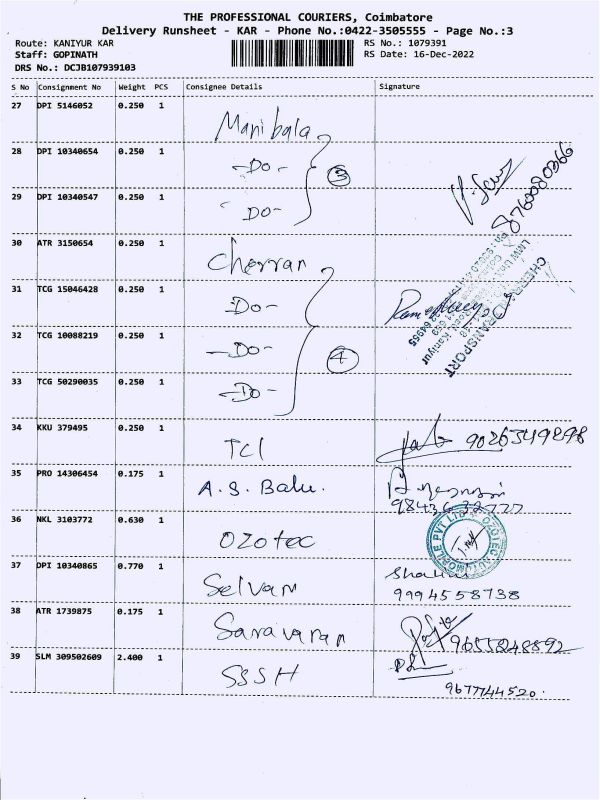 THE PROFESSIONAL COURIERS, Coimbatore
Delivery Runsheet - KAR - Phone No.:0422-3505555 - Page No.:3
Route: KANIYUR KAR RS No.: 1079391
Staff: GOPINATH RS Date: 16-Dec-2022
DRS No.: DCJB107939103
S No Consignment No Weight PCS Consignee Details Signature
27 DPI 5146052 0.250 1 Manibala
28 DPI 10340654 0.250 1 -Do- 3
29 DPI 10340547 0.250 1 -Do- 8760080366
30 ATR 3150654 0.250 1 Cherran
31 TCG 15046428 0.250 1 -Do-
32 TCG 10088219 0.250 1 -Do- 4
33 TCG 50290035 0.250 1 -Do-
34 KKU 379495 0.250 1 TCI
35 PRO 14306454 0.175 1 A.S. Balu.
36 NKL 3103772 0.630 1 OZOTEC
37 DPI 10340865 0.770 1 Selvam
9994558738
38 ATR 1739875 0.175 1 Saravanan
39 SLM 309502609 2.400 1 SSSH
9677744520.